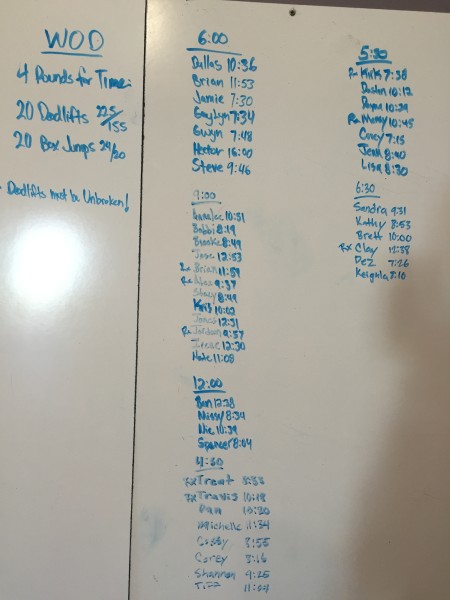 WOD
4 Rounds for Time:
20 Deadlifts 225/155
20 Box Jumps 24/20
Deadlifts must be Unbroken!
6:00
Dallas 10:36
Brian 11:53
Jamie 7:30
Gaylyn 7:34
Gwyn 7:48
Hector 16:00
Steve 9:46
9:00
10:51
Bobbi 8:19
Brooke 8:49
Jose 12:53
Rx Brian 11:59
Rx 9:37
Stacy 8:49
Kris 10:02
James 12:31
Rx Jordan 9:57
Irene 12:30
Nate 11:08
12:00
Ben 12:28
Missy 8:39
Nic 10:39
Spencer 8:04
4:30
Rx Trent 8:33
Rx Travis 10:18
Dan 10:20
Michelle 11:34
Cody 8:55
Corey 8:16
Shannon 9:25
Tiff
5:30
Rx Kirk 7:38
10:12
10:29
Rx 10:45
Corey 7:15
Jenn 8:00
Lisa 8:30
6:30
Sandra 9:31
Kathy 8:53
Brett 10:00
Rx Clay 12:38
Dez 7:26
8:10